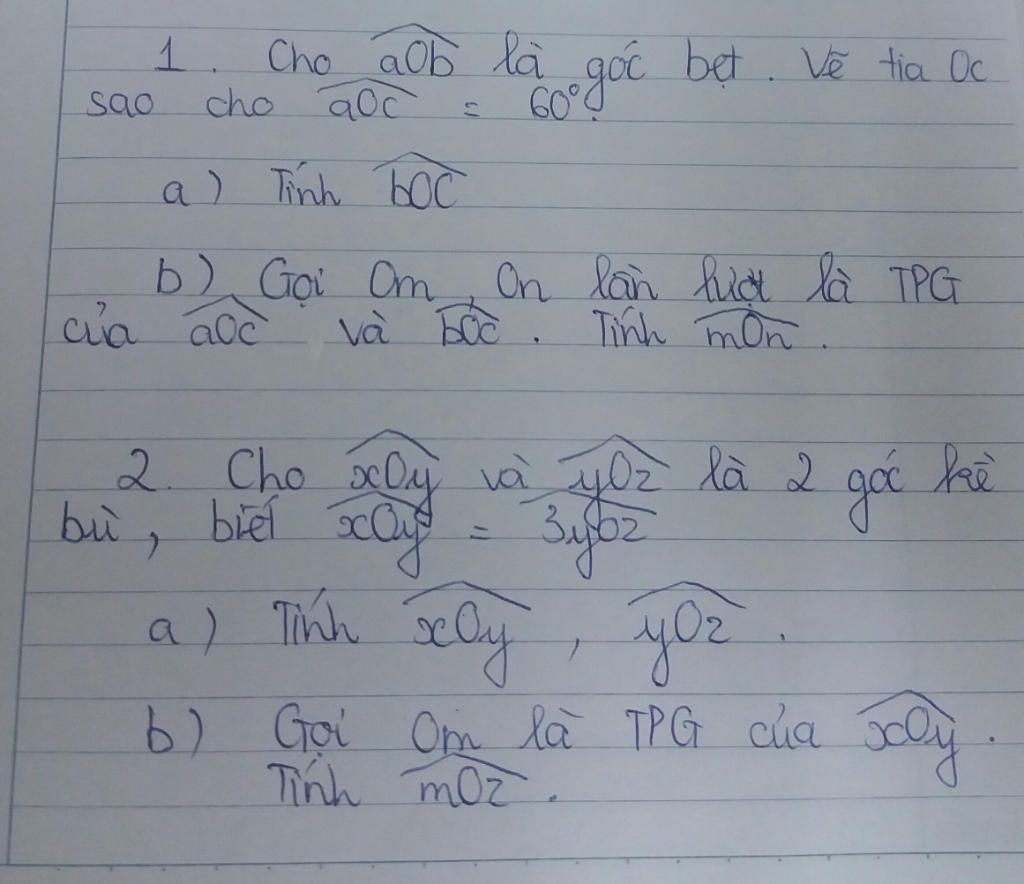 1. Cho aOb là góc bẹt. Vẽ tia Oc
sao cho aOc = 60°.
a) Tính bOC
b) Gọi Om, On lần lượt là TPG
của aOc và bOc. Tính mOn.
2. Cho xOy và yOz là 2 góc kề
bù, biết xOy = 3yOz
a) Tính xOy, yOz.
b) Gọi Om là TPG của xOy.
Tính mOz.